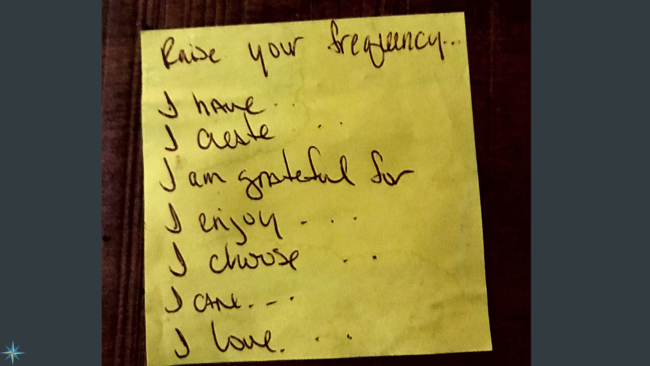 Raise your frequency...
I have..
I create ..
I am grateful for
I enjoy ....
I choose ..
I can...
I love...